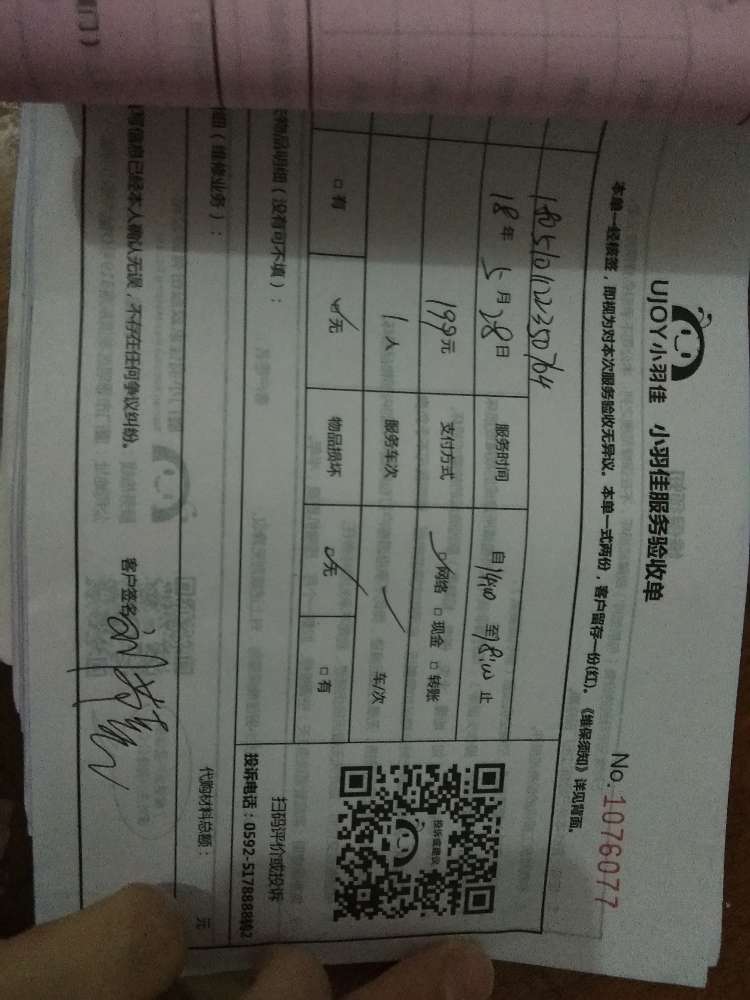 UJOY小羽佳 小羽佳服务验收单
No. 1076077
本单一经核签，即视为对本次服务验收无异议。本单一式两份，客户留存一份(红)。《维保须知》详见背面。
18年5月28日 服务时间 自14:00至18:00止
199元 支付方式 ☑网络 □现金 □转账
1人 服务车次 车/次
□有 ☑无 物品损坏 ☑无 □有
物品明细（没有可不填）：
投诉或建议
扫码评价或投诉
投诉电话：0592-5178888转2
细（维修业务）：
代购材料总额： 元
写信息已经本人确认无误，不存在任何争议纠纷。 客户签名
门）